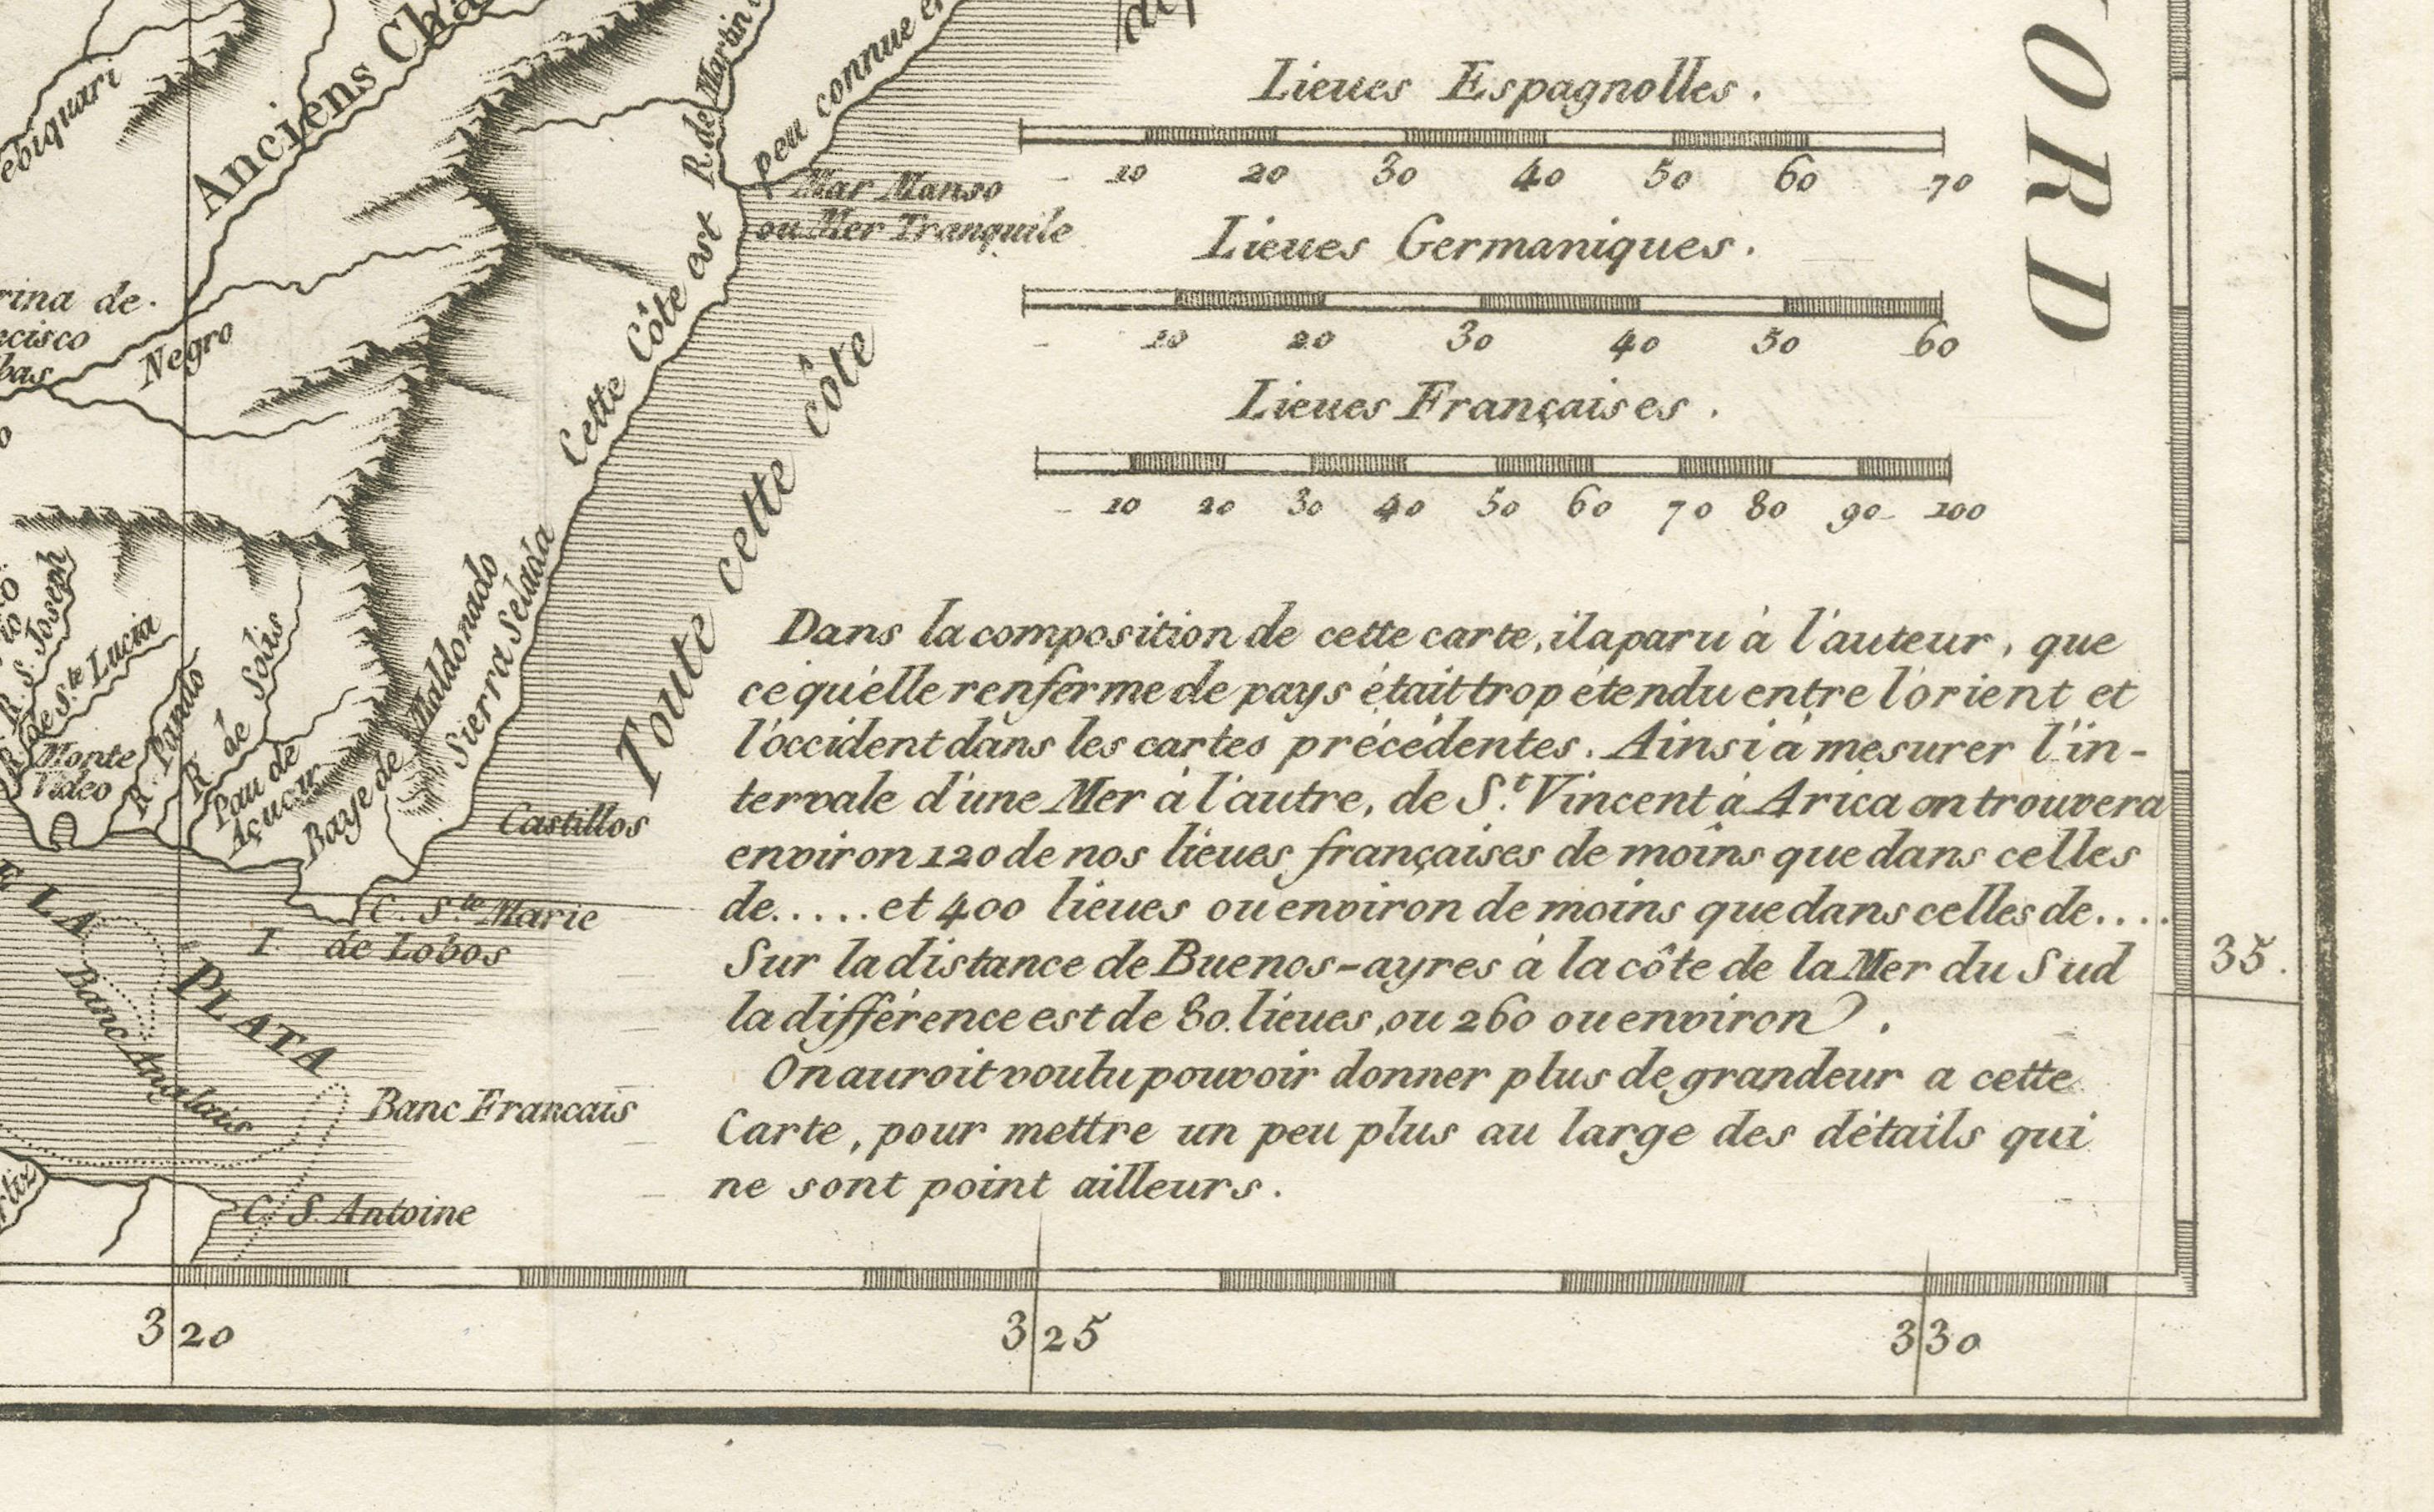 Lieues Espagnolles.
10 20 30 40 50 60 70
Lieues Germaniques.
10 20 30 40 50 60
Lieues Françaises.
10 20 30 40 50 60 70 80 90 100
ORD
Anciens
Negro
rina de.
R. de Martin
peu connue
Cette Côte est
Mar Manso
ou Mer Tranquile
Toute cette côte
R. S. Joseph
R. de S.te Lucia
Monte
Video
R. Pardo
R. de Solis
Pau de
Açucur
Baye de Maldonado
Sierra Selada
Castillos
C. S.te Marie
I. de Lobos
LA
PLATA
Banc Anglais
Banc Francais
C. S. Antoine
Dans la composition de cette carte, il a paru à l'auteur, que
ce qu'elle renferme de pays était trop étendu entre l'orient et
l'occident dans les cartes précédentes. Ainsi à mesurer l'in-
tervale d'une Mer à l'autre, de S.t Vincent à Arica on trouvera
environ 120 de nos lieues françaises de moins que dans celles
de..... et 400 lieues ou environ de moins que dans celles de....
Sur la distance de Buenos-ayres à la côte de la Mer du Sud
la différence est de 80. lieues, ou 260 ou environ.
On auroit voulu pouvoir donner plus de grandeur a cette
Carte, pour mettre un peu plus au large des détails qui
ne sont point ailleurs.
35.
320 325 330